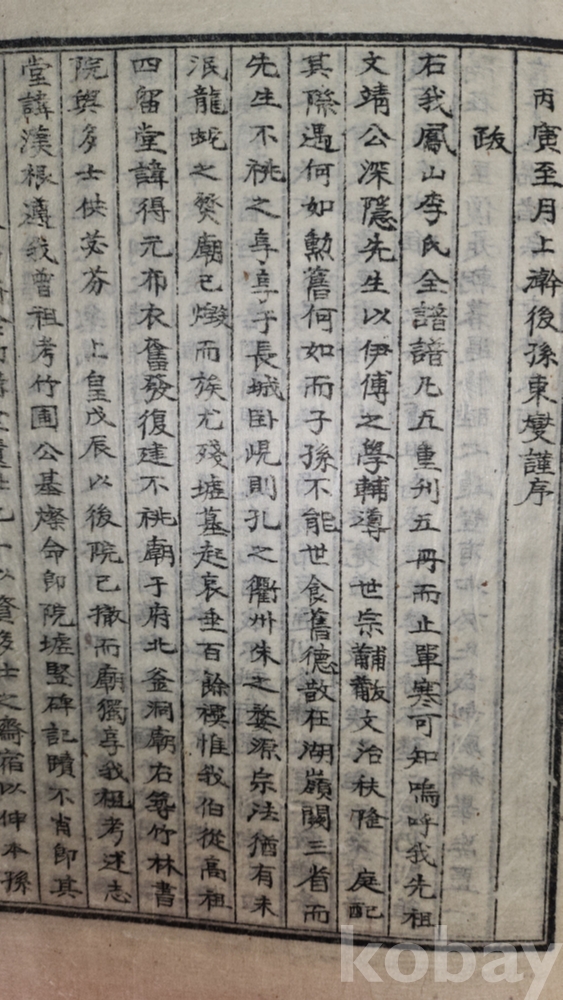 丙寅至月上澣後孫東燮謹序
跋
右我鳳山李氏全譜譜凡五重刊五冊而止單寒可知嗚呼我先祖
文靖公深隱先生以伊傅之學輔導 世宗黼黻文治秩隆 庭配
其際遇何如勳舊何如而子孫不能世食舊德散在湖嶺關三省而
先生不祧之享享于長城臥峴則孔之衢州朱之婺源宗法猶有未
泯龍蛇之燹廟已燬而族尤殘墟墓起哀垂百餘禩惟我伯從高祖
四留堂諱得元布衣奮發復建不祧廟于府北釜洞廟右等竹林書
院與多士供苾芬 上皇戊辰以後院已撤而廟獨享我祖考述志
堂諱漢根遵我曾祖考竹圃公基燦命即院墟竪碑記蹟不肖即其
以資多士之齋宿以伸本孫
kobay